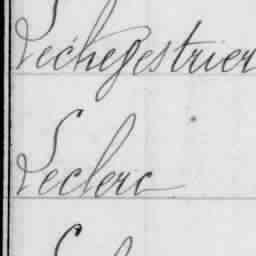 Léchegestrier
Leclerc